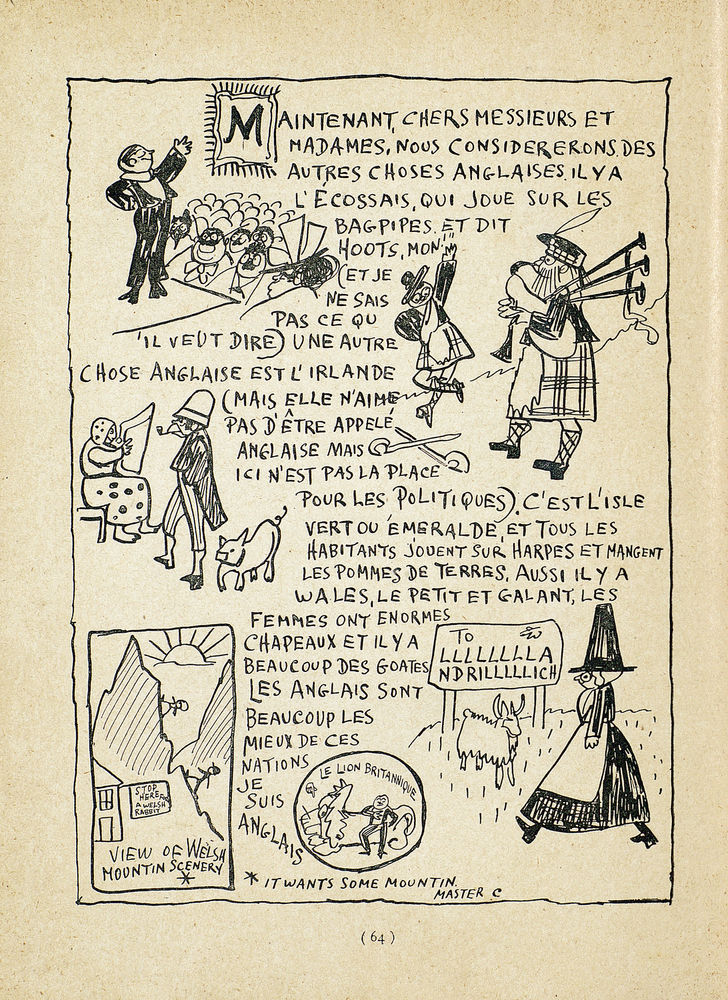 MAINTENANT, CHERS MESSIEURS ET
MADAMES, NOUS CONSIDERERONS, DES
AUTRES CHOSES ANGLAISES. IL Y A
L'ÉCOSSAIS, QUI JOUE SUR LES
BAGPIPES. ET DIT
HOOTS, MON!!!
(ET JE
NE SAIS
PAS CE QU
'IL VEUT DIRE) UNE AUTRE
CHOSE ANGLAISE EST L'IRLANDE
(MAIS ELLE N'AIME
PAS D'ÊTRE APPELÉ
ANGLAISE MAIS
ICI N'EST PAS LA PLACE
POUR LES POLITIQUES). C'EST L'ISLE
VERT OU ÉMERALDE, ET TOUS LES
HABITANTS JOUENT SUR HARPES ET MANGENT
LES POMMES DE TERRES, AUSSI IL Y A
WALES, LE PETIT ET GALANT, LES
FEMMES ONT ENORMES
CHAPEAUX ET IL Y A
BEAUCOUP DES GOATES
LES ANGLAIS SONT
BEAUCOUP LES
MIEUX DE CES
NATIONS
JE
SUIS
ANGLAIS
TO
LLLLLLLLA
NDRILLLLLICH
STOP
HERE FOR
A WELSH
RABBIT
VIEW OF WELSH
MOUNTIN SCENERY *
LE LION BRITANNIQUE
* IT WANTS SOME MOUNTIN.
MASTER C
(64)